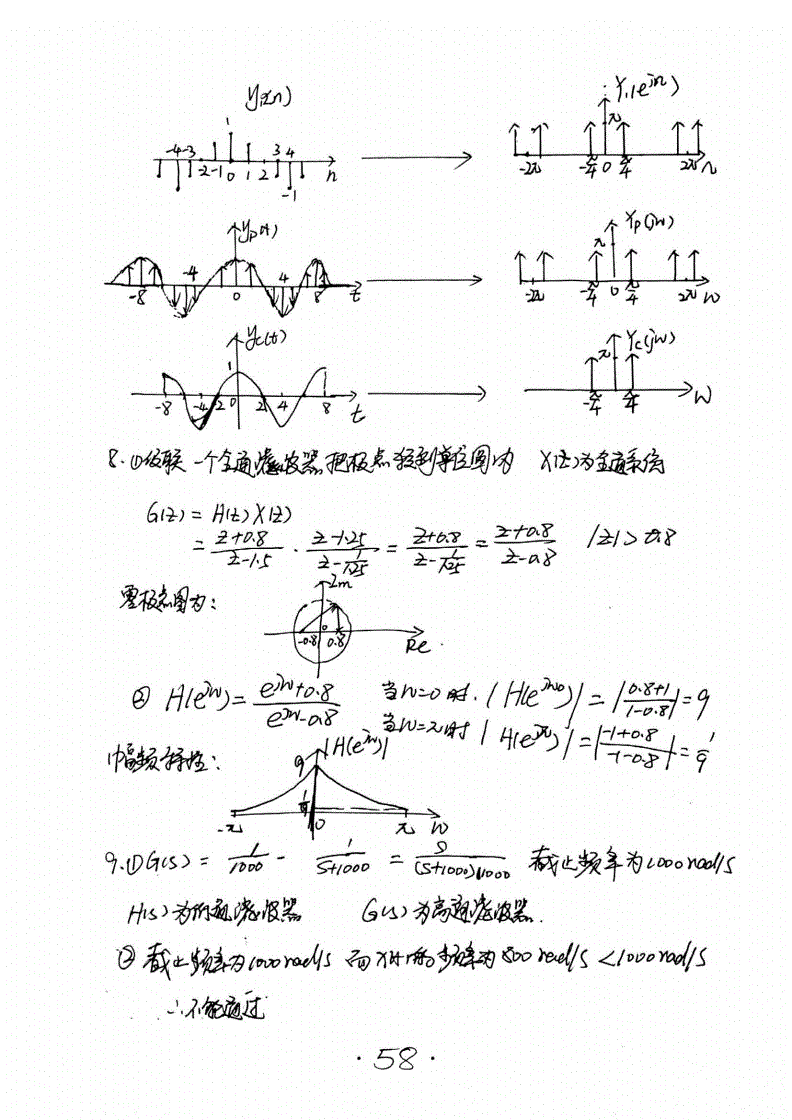 y₁(n) Y₁(e^{jΩ})
1 π
-4 -3 -2 -1 0 1 2 3 4 n -2π -π/4 0 π/4 2π Ω
-1
yp(t) Yp(jω)
π
-8 -4 0 4 8 t -2π -π/4 0 π/4 2π ω
yc(t) Yc(jω)
1 π
-8 -4 -2 0 2 4 8 t -π/4 π/4 ω
8.①级联一个全通滤波器,把极点移到单位圆内 X(z)为全通系统
G(z) = H(z)X(z)
= (z+0.8)/(z-1.5) · (z-1.25)/(z-1/1.25) = (z+0.8)/(z-1/1.25) = (z+0.8)/(z-0.8) |z| > 0.8
零极点图为: Im
-0.8 0 0.8 Re
② H(e^{jω}) = (e^{jω}+0.8)/(e^{jω}-0.8) 当ω=0时. |H(e^{jω0})| = |(0.8+1)/(1-0.8)| = 9
当ω=π时 |H(e^{jπ})| = |(-1+0.8)/(-1-0.8)| = 1/9
幅频特性: |H(e^{jω})|
9
1/9
-π 0 π ω
9.①G(s) = 1/1000 - 1/(s+1000) = s/((s+1000)1000) 截止频率为1000rad/s
H(s)为低通滤波器 G(s)为高通滤波器.
② 截止频率为1000rad/s 而x(t)的频率为800rad/s <1000rad/s
∴不能通过
·58·